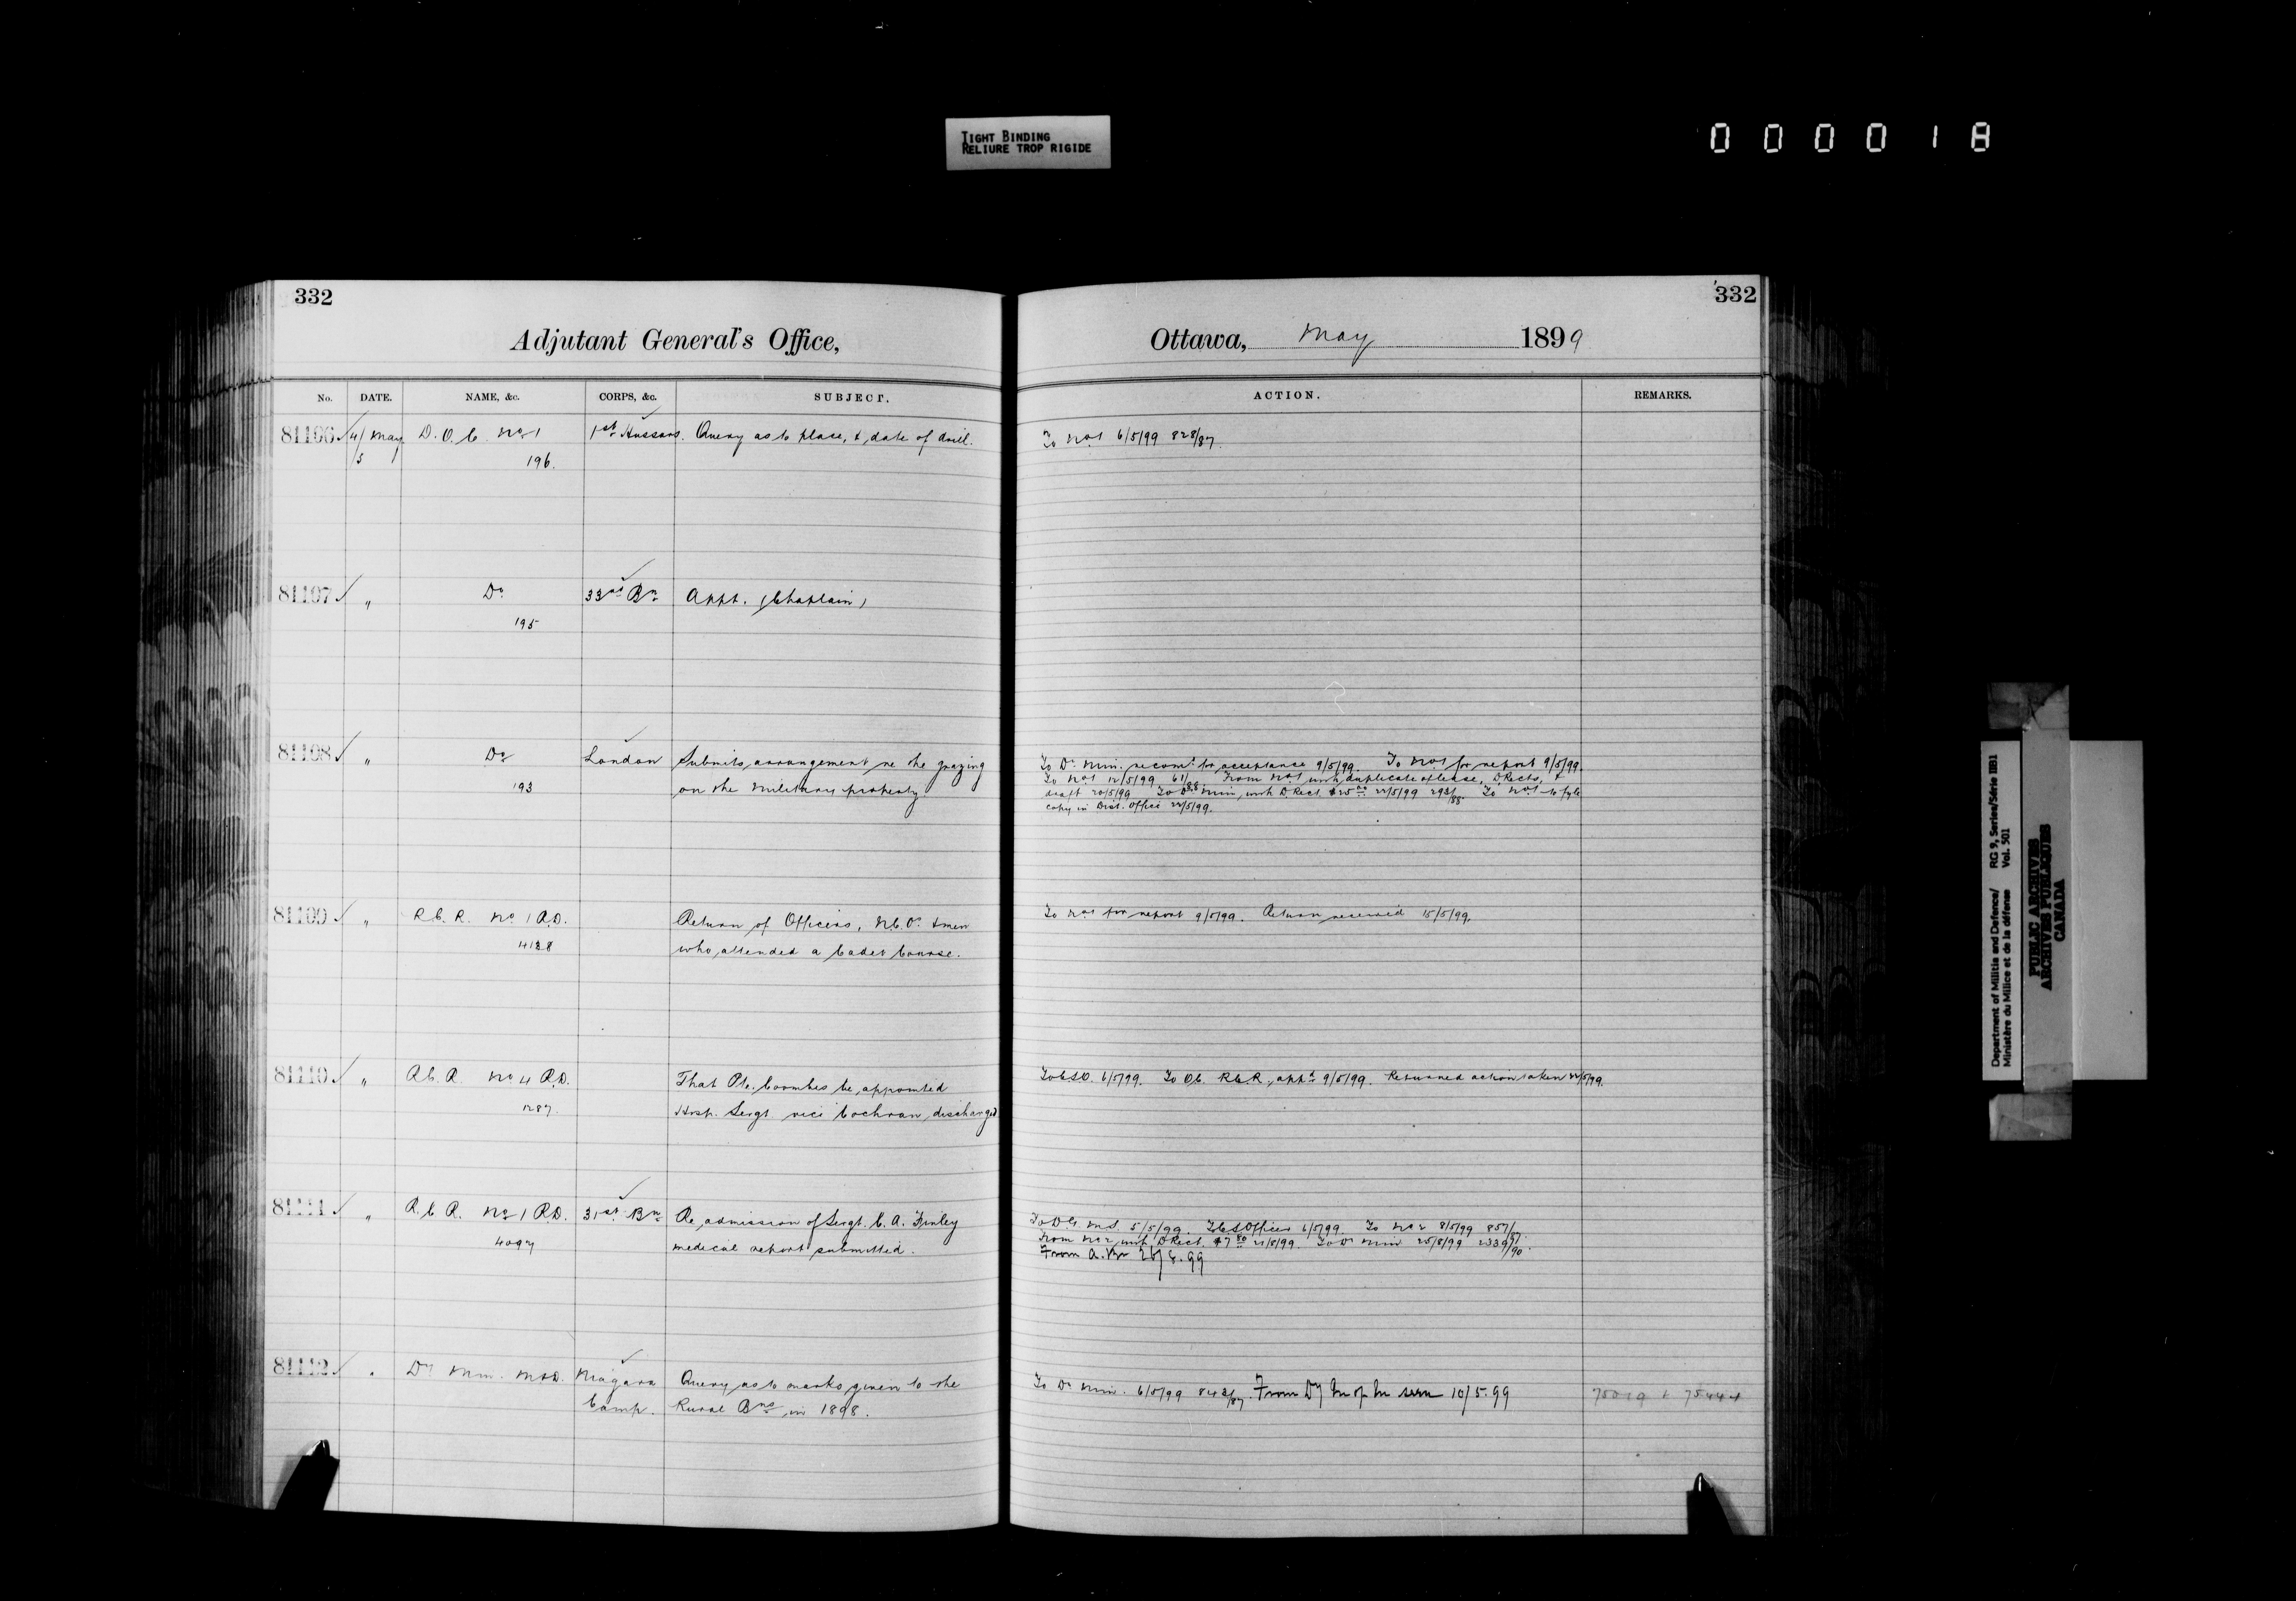 TIGHT BINDING
RELIURE TROP RIGIDE
000018
332
332
Adjutant General's Office,
Ottawa, May 1899
No. DATE. NAME, &c. CORPS, &c. SUBJECT. ACTION. REMARKS.
81106 4/5 May D.O.C. No 1 1st Hussars. Query as to place, & date of drill. To No 1 6/5/99 828/87.
196.
81107 " Do 33rd Bn Appt. (Chaplain)
195
81108 " Do London Submits arrangement re the grazing
193 on the military property.
To Dy Min. recomd for acceptance 9/5/99. To No 1 for report 9/5/99.
To No 1 12/5/99 61/88 From No 1 with duplicate of lease, D Rects, &
draft 20/5/99 To Dy Min, with D. Rect. $25.00 22/5/99 293/88. To No 1 to fyle
copy in Dist. Office 22/5/99.
81109 " R.C.R. No 1 R.D. Return of Officers, N.C.O.s & men
4128 who attended a Cadet Course.
To No 1 for report 9/5/99. Return received 15/5/99.
81110 " R.C.R. No 4 R.D. That Pte. Coombes be appointed
1287. Hosp. Sergt vice Cochran, discharged
To C.S.O. 6/5/99. To O.C. R.C.R., appd 9/5/99. Returned action taken 22/5/99.
81111 " R.C.R. No 1 R.D. 31st Bn Re admission of Sergt. C. A. Finley
4097 medical report submitted.
To D.G.M.S. 5/5/99 To C.S. Officer 6/5/99. To No 2 8/5/99 857/87.
From No 2, with D Rect. $7.50 21/8/99. To Dy Min 25/8/99 2339/90.
From A. 26/8.99
81112 " Dy Min. M&D. Niagara Query as to marks given to the
Camp. Rural Bns in 1898.
To Dy Min. 6/5/99 843/87. From Dy M of M seen 10/5.99
Department of Militia and Defence/ RG 9, Series/Série IIB1
Ministère du Milice et de la défense Vol. 501
PUBLIC ARCHIVES
ARCHIVES PUBLIQUES
CANADA